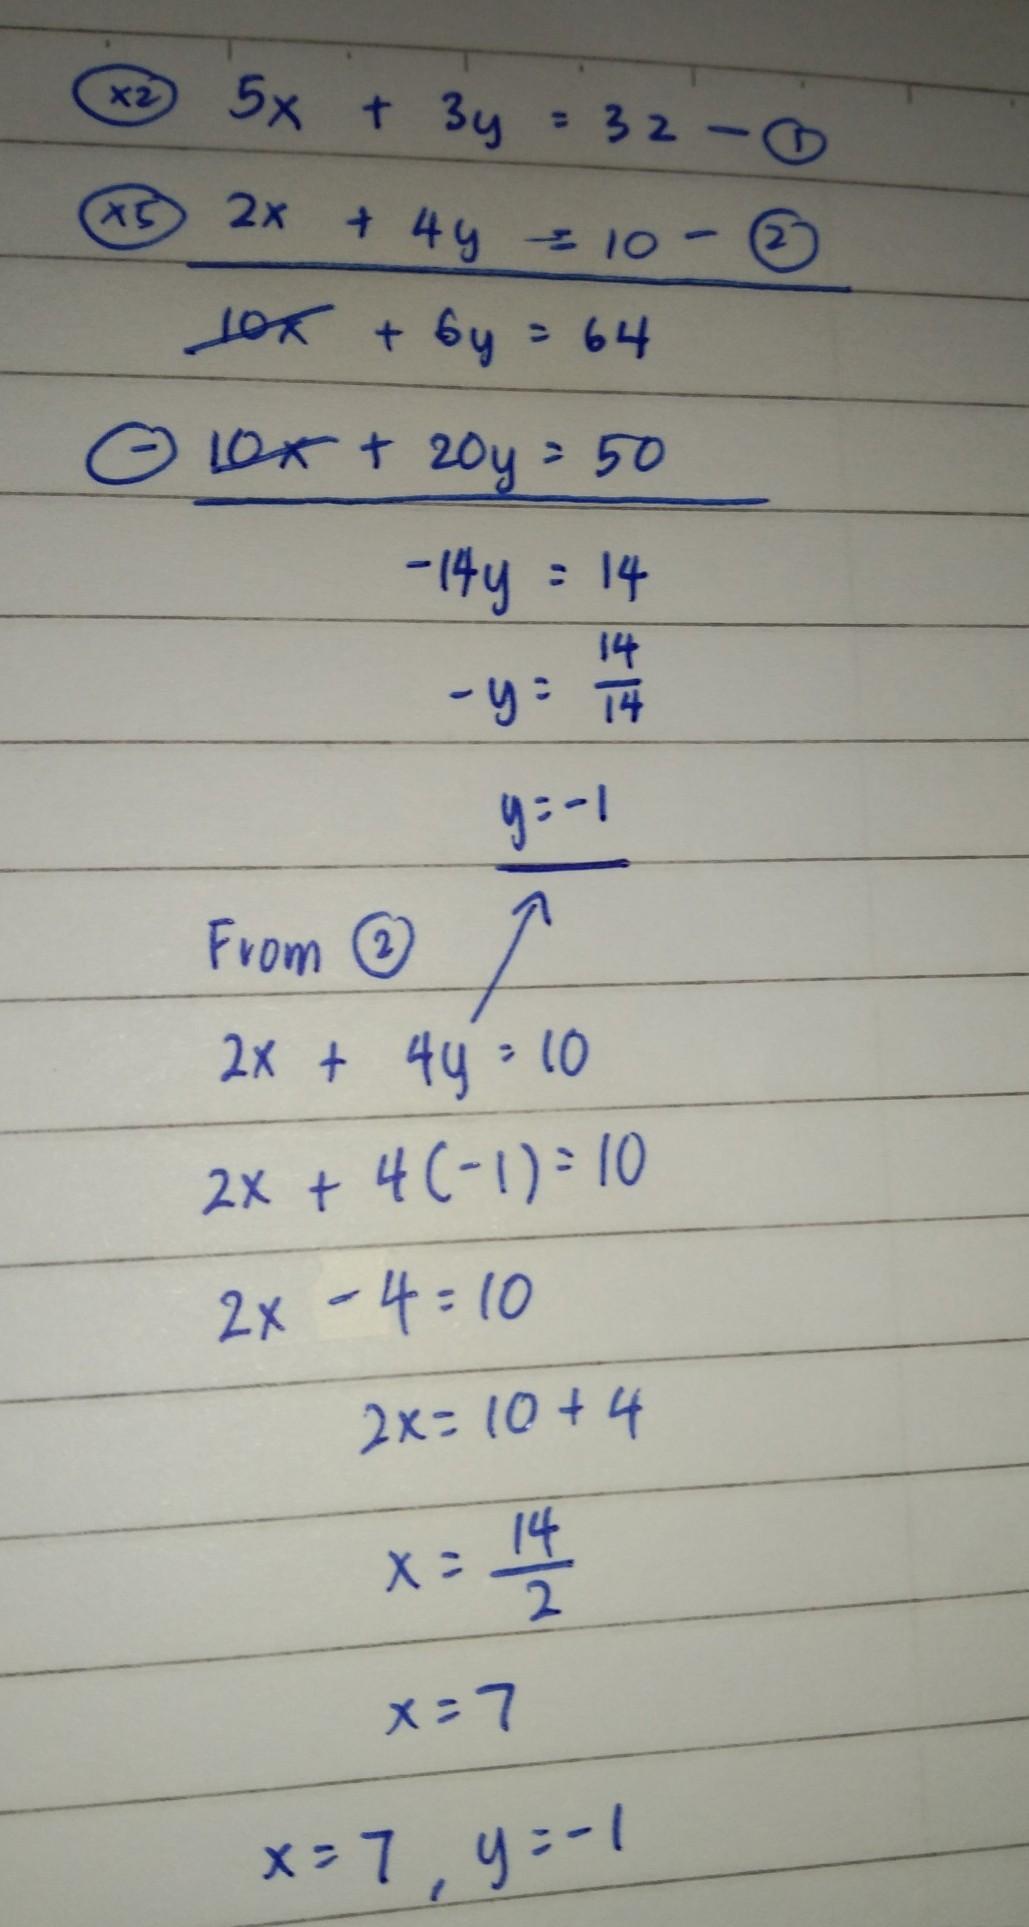 ×2 5x + 3y = 32 - ①
×5 2x + 4y = 10 - ②
10x + 6y = 64
- 10x + 20y = 50
-14y = 14
-y = 14/14
y = -1
From ②
2x + 4y = 10
2x + 4(-1) = 10
2x - 4 = 10
2x = 10 + 4
x = 14/2
x = 7
x = 7, y = -1